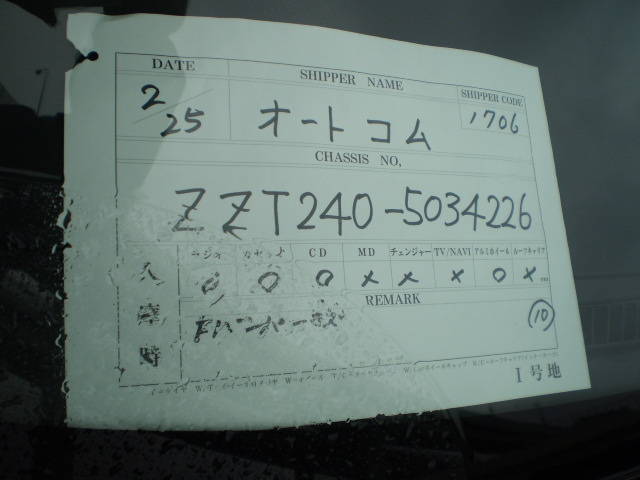 DATE SHIPPER NAME SHIPPER CODE
2/25 オートコム 1706
CHASSIS NO.
ZZT240-5034226
ラジオ カセット CD MD チェンジャー TV/NAVI アルミホイール ルーフキャリア
入庫時 O O O × × × O ×
REMARK
10
I号地